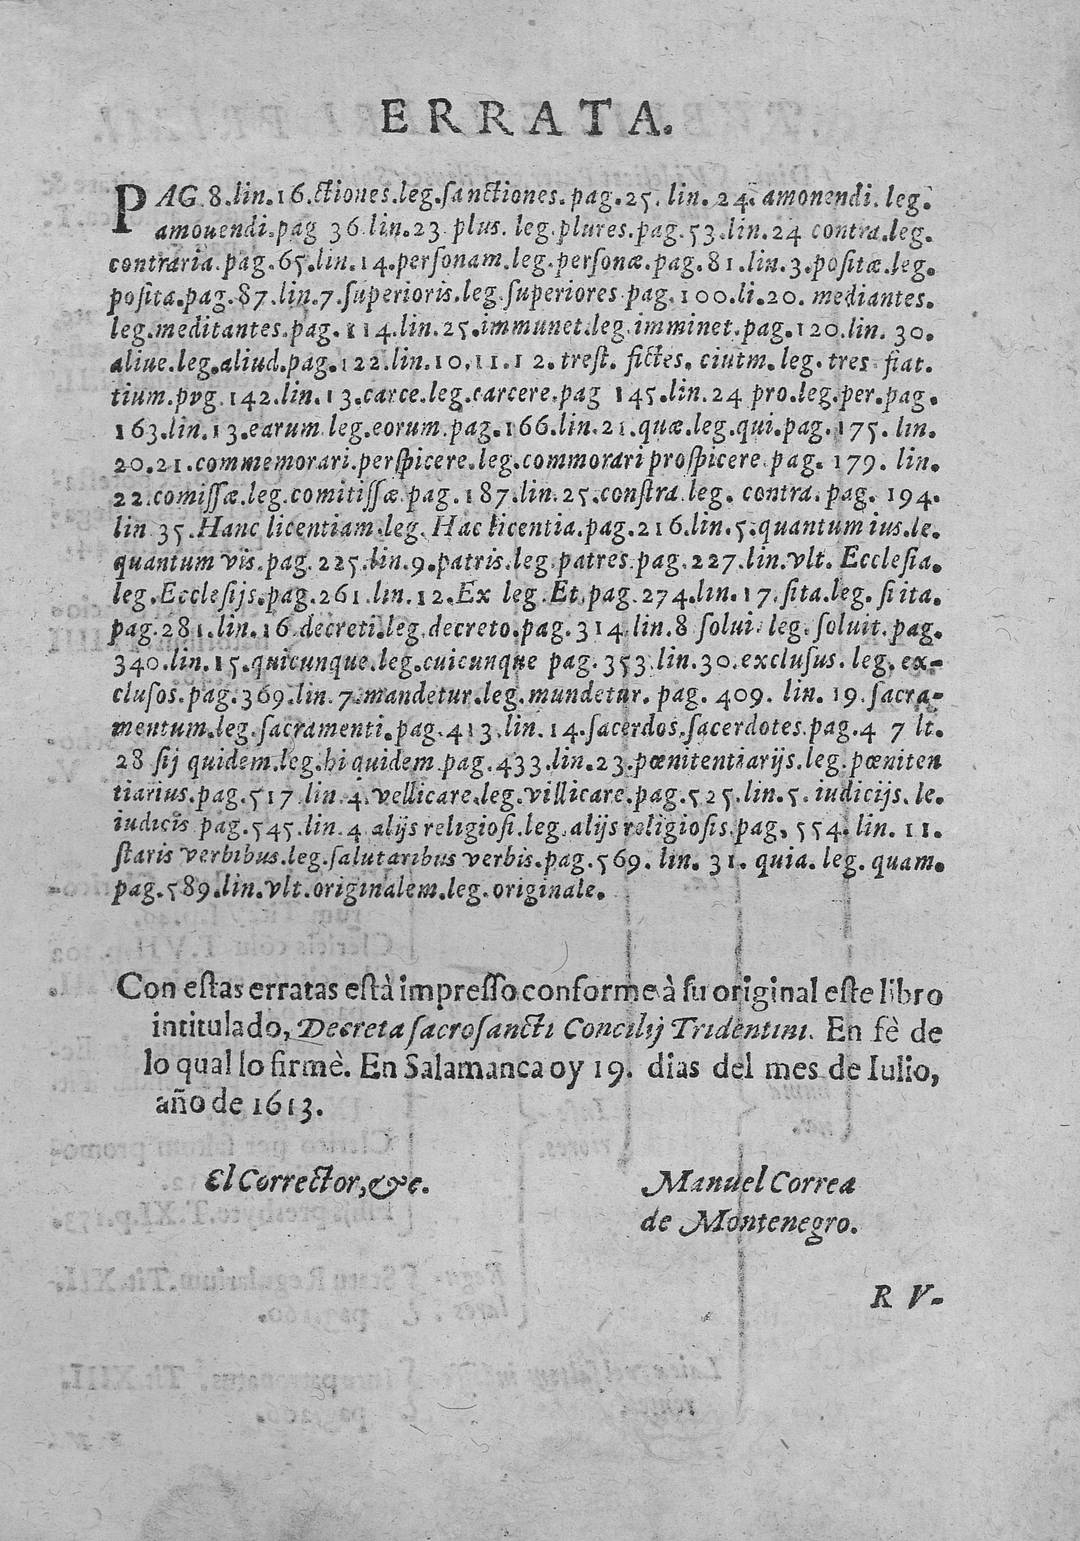 ERRATA.
PAG 8.lin.16.ctiones.leg.sanctiones.pag.25. lin. 24. amonendi. leg.
amouendi.pag 36.lin.23 plus. leg.plures.pag.53.lin.24 contra.leg.
contraria.pag.65.lin.14.personam.leg.personæ.pag.81.lin.3.positæ.leg.
posita.pag.87.lin.7.superioris.leg.superiores.pag.100.li.20. mediantes.
leg.meditantes.pag.114.lin.25.immunet.leg.imminet.pag.120.lin. 30.
aliue.leg.aliud.pag.122.lin.10.11.12.trest. fictes. ciutm. leg. tres fiat.
tium.pvg.142.lin.13.carce.leg.carcere.pag 145.lin.24 pro.leg.per.pag.
163.lin.13.earum.leg.eorum.pag.166.lin.21.quæ.leg.qui.pag.175. lin.
20.21.commemorari.perspicere.leg.commorari prospicere.pag. 179. lin.
22.comissæ.leg.comitissæ.pag.187.lin.25.constra.leg. contra. pag. 194.
lin 35.Hanc licentiam.leg. Hac licentia.pag.216.lin.5.quantum ius.le.
quantum vis.pag.225.lin.9.patris.leg.patres.pag.227.lin.vlt. Ecclesia.
leg.Ecclesijs.pag.261.lin.12.Ex leg.Et.pag.274.lin.17.sita.leg. si ita.
pag.281.lin.16.decreti.leg.decreto.pag.314.lin.8 solui. leg. soluit.pag.
340.lin.15.quicunque.leg.cuicunque pag.353.lin.30.exclusus. leg. ex-
clusos.pag.369.lin.7.mandetur.leg.mundetur. pag. 409. lin. 19.sacra-
mentum.leg.sacramenti.pag.413.lin.14.sacerdos.sacerdotes.pag.4 7 lt.
28 sij quidem.leg.hi quidem.pag.433.lin.23.pœnitentiarijs.leg.pœniten
tiarius.pag.517.lin.4.vellicare.leg.villicare.pag.525.lin.5.iudicijs.le.
iudicis pag.545.lin.4 alijs religiosi.leg.alijs religiosis.pag, 554. lin. 11.
staris verbibus.leg.salutaribus verbis.pag.569. lin. 31. quia. leg. quam.
pag.589.lin.vlt.originalem.leg.originale.
Con estas erratas està impresso conforme à su original este libro
intitulado, Decreta sacrosancti Concilij Tridentini. En fè de
lo qual lo firmè. En Salamanca oy 19. dias del mes de Iulio,
año de 1613.
El Corrector,&c.
Manuel Correa
de Montenegro.
R V-